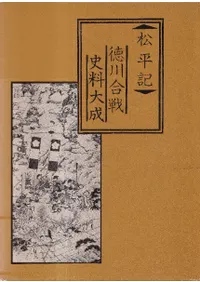 【松平記】
徳川合戦
史料大成